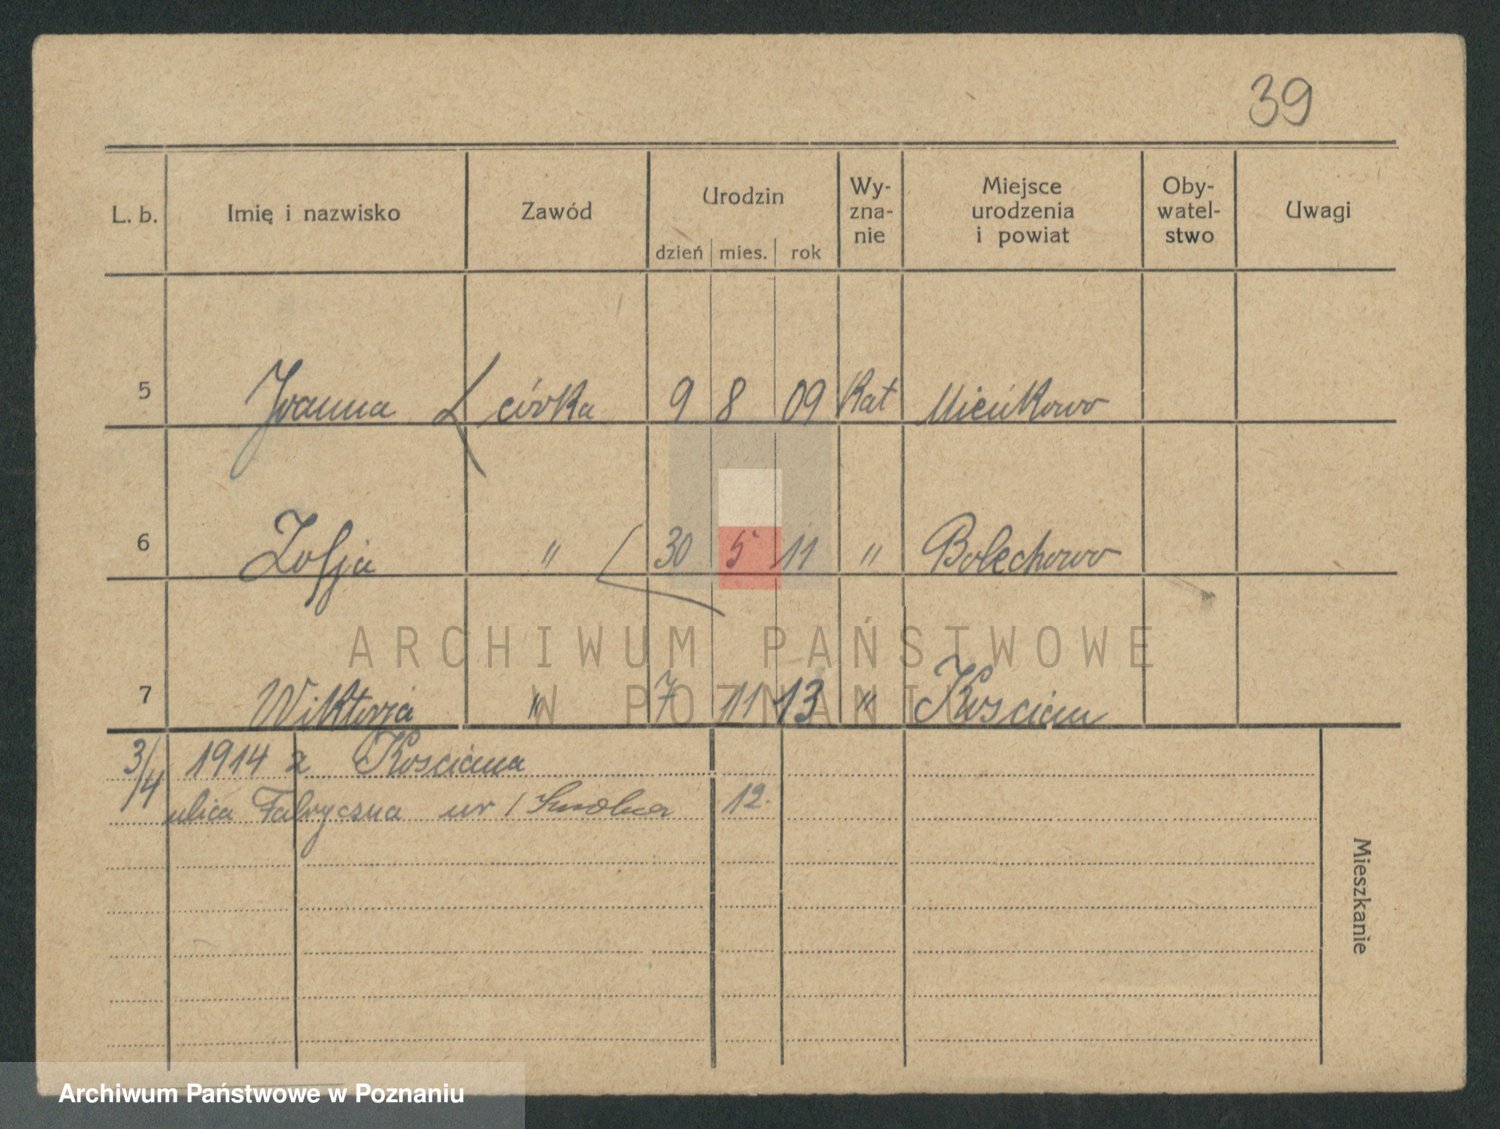 39
L. b. Imię i nazwisko Zawód Urodzin dzień mies. rok Wy-zna-nie Miejsce urodzenia i powiat Oby-watel-stwo Uwagi
5 Joanna córka 9 8 09 Kat Mieńkowo
6 Zofja " 30 5 11 " Bolechowo
ARCHIWUM PAŃSTWOWE
W POZNANIU
7 Wiktorja " 7 11 13 " Kościan
3/4 1914 z Kościana
ulica Fabryczna nr 1 Smolna 12.
Mieszkanie
Archiwum Państwowe w Poznaniu